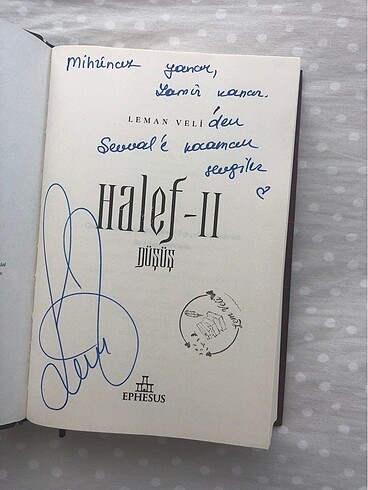 Mihrinaz yanar,
Zamir kanar.
LEMAN VELİ'den
Sevval'e kocaman
sevgiler
Halef-II
DÜŞÜŞ
EPHESUS